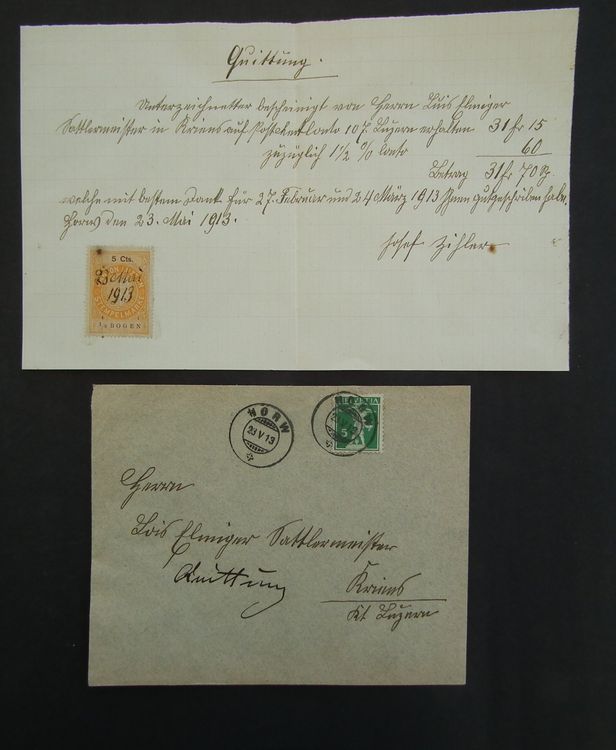 Quittung.
Unterzeichnetter bescheinigt von Herrn Luis Elmiger
Sattlermeister in Kriens auf Postchek Conto 107. Luzern erhalten 31 fr 15
zuzüglich 1½ % Conto 60
Betrag 31 fr 70
welche mit bestem Dank für 27. Februar und 24 März 1913 Ihnen gutgeschrieben habe.
Horw den 23. Mai 1913.
Josef Zihler
5 Cts.
23 Mai
1913
STEMPELMARKE
½ BOGEN
HORW
23 V 13
HORW
HELVETIA
5
Herrn
Lois Elmiger Sattlermeister
Quittung
Kriens
Kt Luzern